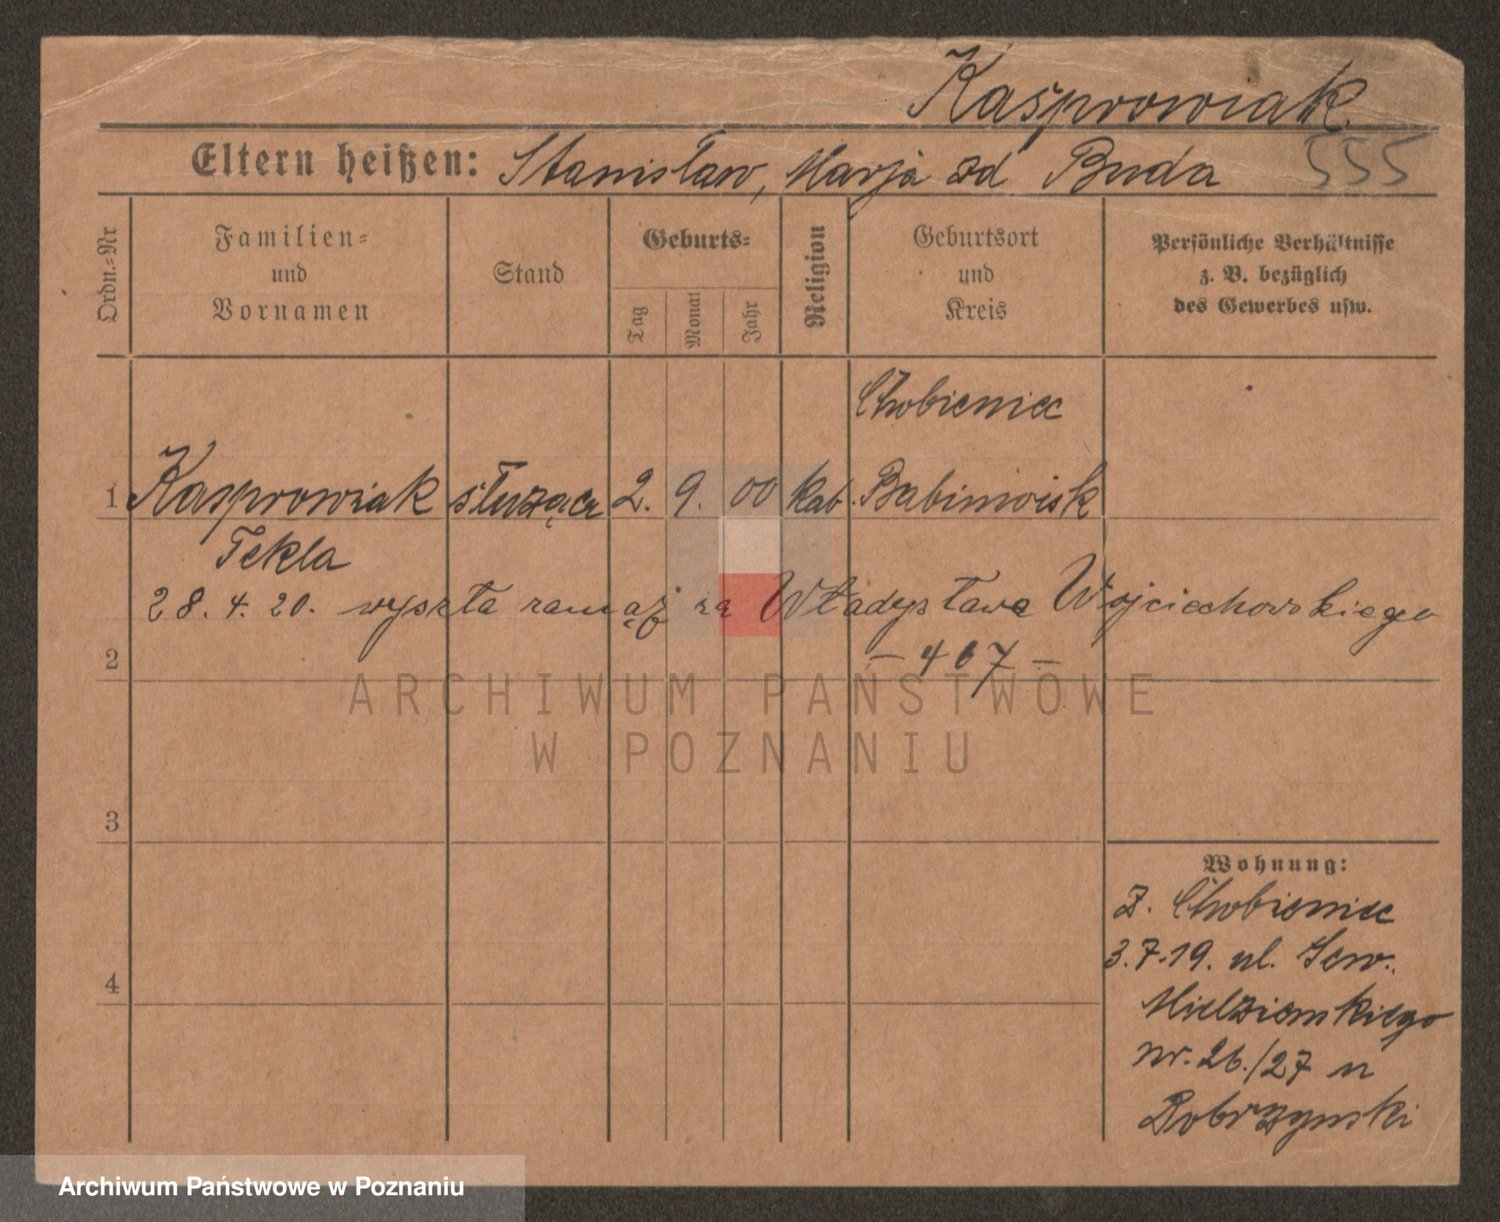 Kasprowiak
Eltern heißen: Stanisław, Marja zd Buda 555
Ordn.-Nr
Familien-
und
Vornamen
Stand
Geburts-
Tag
Monat
Jahr
Religion
Geburtsort
und
Kreis
Persönliche Verhältnisse
z. B. bezüglich
des Gewerbes usw.
Chobieniec
1 Kasprowiak służąca 2. 9. 00 kat. Babimoisk
Tekla
28. 4. 20. wyszła zamąż za Władysława Wojciechowskiego
2 – 467 –
3
4
Wohnung:
Z. Chobieniec
3.7.19. ul. Sew.
Mielzienskiego
nr. 26./27 u
Dobrzynski
ARCHIWUM PAŃSTWOWE
W POZNANIU
Archiwum Państwowe w Poznaniu